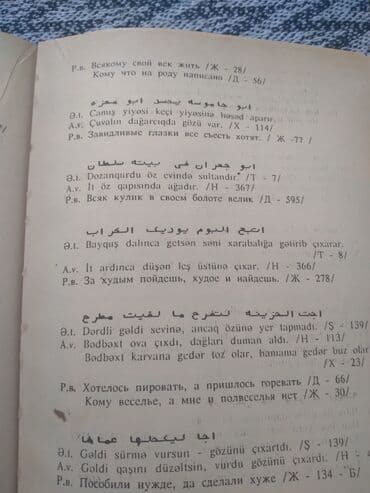 Р.в. Всякому свой век жить /Ж - 28/
Кому что на роду написано /Д - 56/
ابو جاموسه يحسد ابو معزه
Ə.t. Camış yiyəsi keçi yiyəsinə həsəd aparır.
A.v. Çuvalın dağarcıqda gözü var. /X - 114/
Р.в. Завидливые глазки все съесть хотят. / Ж -77 /
ابو جعران فى بيته سلطان
Ə.t. Dozanqurdu öz evində sultandır. /T - 7/
A.v. İt öz qapısında ağadır. /H - 367/
Р.в. Всяк кулик в своем болоте велик /Д - 595/
اتبع البوم يوديك الخراب
Ə.t. Bayquş dalınca getsən səni xarabalığa gətirib çıxarar.
/T - 8/
A.v. İt ardınca düşən leş üstünə çıxar. /H - 366/
Р.в. За худым пойдешь, худое и найдешь. /Ж - 278/
اجت الحزينه لتفرح ما لقيت مطرح
Ə.t. Dərdli gəldi sevinə, ancaq özünə yer tapmadı. /Ş - 139/
A.v. Bədbəxt ova çıxdı, dağları duman aldı. /H - 113/
Bədbəxt karvana gedər toz olar, hamama gedər buz olar
/X - 23/
Р.в. Хотелось пировать, а пришлось горевать /Д - 66/
Кому веселье, а мне и полвеселья нет /Ж - 30/
اجا ليكحلها عماها
Ə.t. Gəldi sürmə vursun - gözünü çıxartdı. /Ş - 139/
A.v. Gəldi qaşını düzəltsin, vurdu gözünü çıxardı.
Р.в. Пособили нужде, да сделали хуже /Ж - 134 - Б/